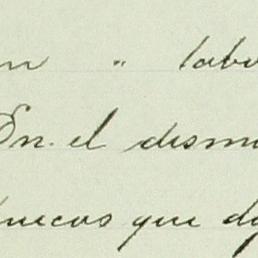 n " labo
En el dism
huecos que d